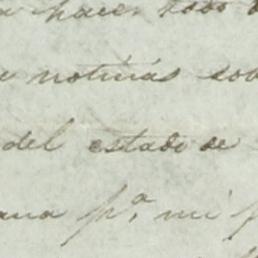 hacer todo
noticias sob
del estado de
ana pª. mi p